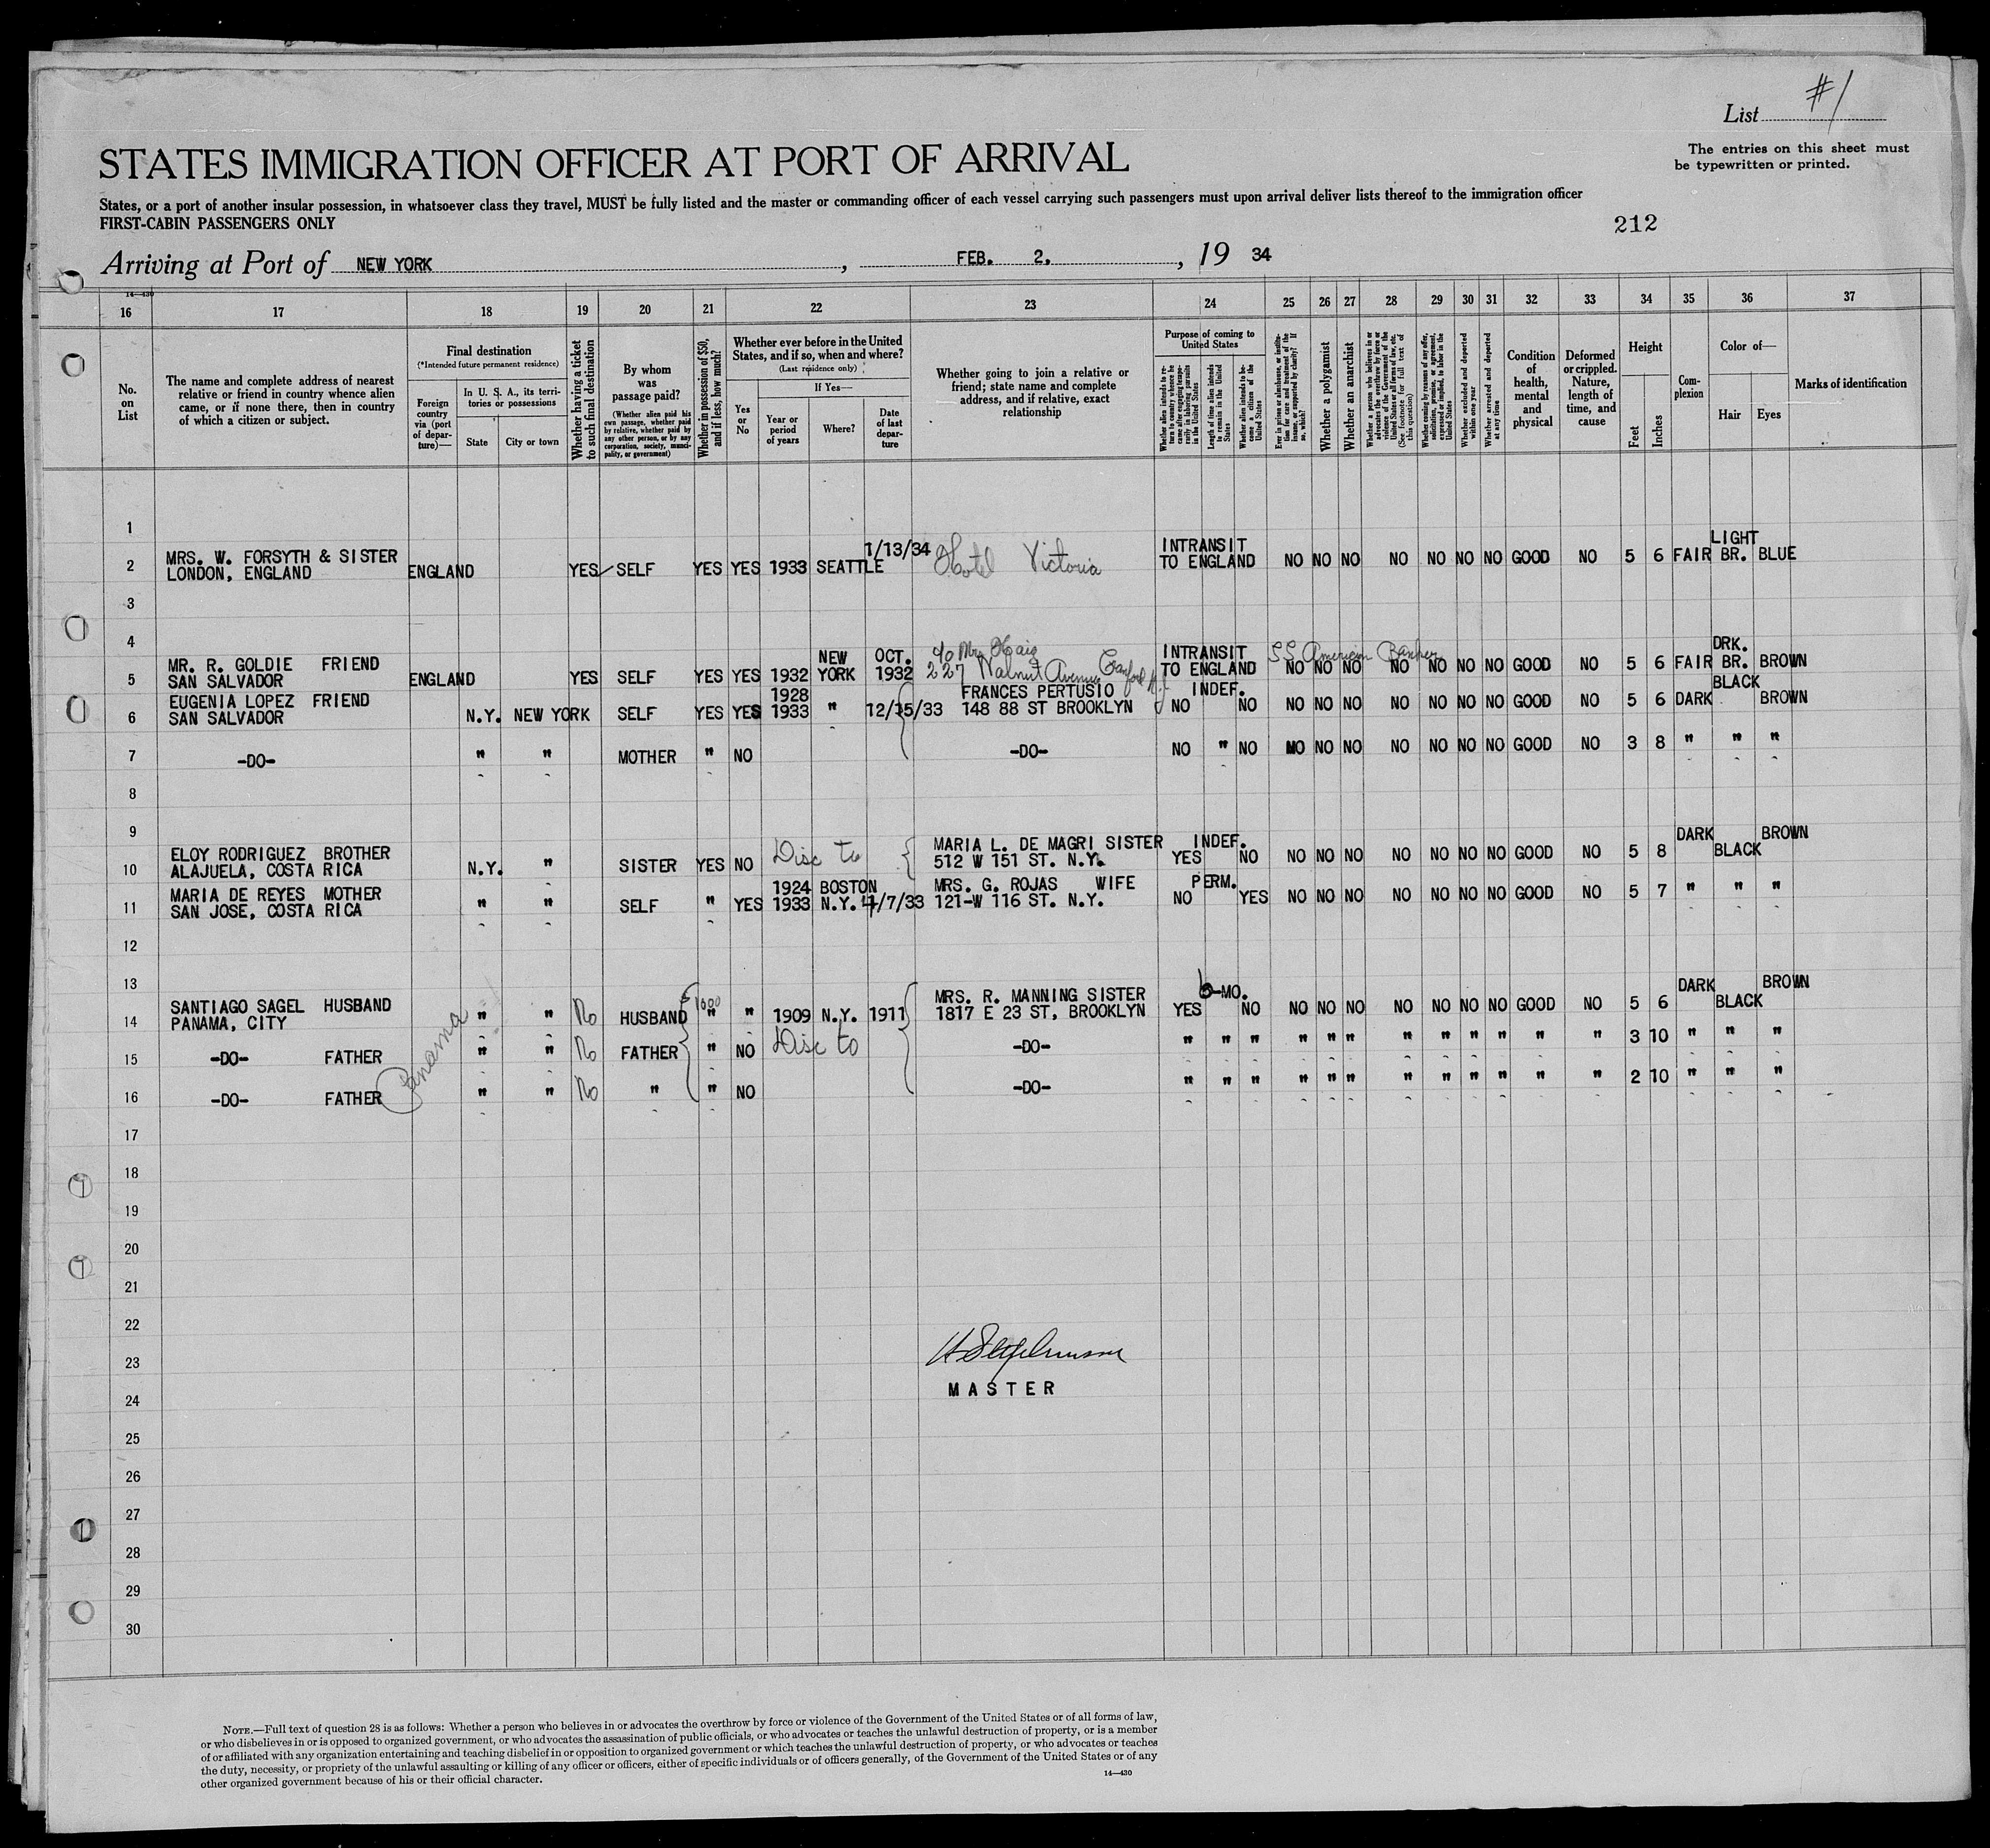 List #1
The entries on this sheet must
be typewritten or printed.
STATES IMMIGRATION OFFICER AT PORT OF ARRIVAL
States, or a port of another insular possession, in whatsoever class they travel, MUST be fully listed and the master or commanding officer of each vessel carrying such passengers must upon arrival deliver lists thereof to the immigration officer
FIRST-CABIN PASSENGERS ONLY
212
Arriving at Port of NEW YORK, FEB. 2, 19 34
14—430
16 17 18 19 20 21 22 23 24 25 26 27 28 29 30 31 32 33 34 35 36 37
No.
on
List
The name and complete address of nearest
relative or friend in country whence alien
came, or if none there, then in country
of which a citizen or subject.
Final destination
(*Intended future permanent residence)
Foreign
country
via (port
of depar-
ture)—
In U. S. A., its terri-
tories or possessions
State
City or town
Whether having a ticket
to such final destination
By whom
was
passage paid?
(Whether alien paid his
own passage, whether paid
by relative, whether paid by
any other person, or by any
corporation, society, munici-
pality, or government)
Whether in possession of $50,
and if less, how much?
Whether ever before in the United
States, and if so, when and where?
(Last residence only)
Yes
or
No
If Yes—
Year or
period
of years
Where?
Date
of last
depar-
ture
Whether going to join a relative or
friend; state name and complete
address, and if relative, exact
relationship
Purpose of coming to
United States
Whether alien intends to re-
turn to country whence he
came after engaging tempo-
rarily in laboring pursuits
in the United States
Length of time alien intends
to remain in the United
States
Whether alien intends to be-
come a citizen of the
United States
Ever in prison or almshouse, or institu-
tion for care and treatment of the
insane, or supported by charity? If
so, which?
Whether a polygamist
Whether an anarchist
Whether a person who believes in or
advocates the overthrow by force or
violence of the Government of the
United States or all forms of law, etc.
(See footnote for full text of
this question)
Whether coming by reason of any offer,
solicitation, promise, or agreement,
expressed or implied, to labor in the
United States
Whether excluded and deported
within one year
Whether arrested and deported
at any time
Condition
of
health,
mental
and
physical
Deformed
or crippled.
Nature,
length of
time, and
cause
Height
Feet
Inches
Com-
plexion
Color of—
Hair
Eyes
Marks of identification
1
1/13/34 INTRANSIT LIGHT
MRS. W. FORSYTH & SISTER
2 LONDON, ENGLAND ENGLAND YES SELF YES YES 1933 SEATTLE Hotel Victoria TO ENGLAND NO NO NO NO NO NO NO GOOD NO 5 6 FAIR BR. BLUE
3
4
NEW OCT. c/o Mrs Haig INTRANSIT SS American Banker DRK.
MR. R. GOLDIE FRIEND
5 SAN SALVADOR ENGLAND YES SELF YES YES 1932 YORK 1932 227 Walnut Avenue Cranford N.J. TO ENGLAND NO NO NO NO NO NO NO GOOD NO 5 6 FAIR BR. BROWN
EUGENIA LOPEZ FRIEND 1928 FRANCES PERTUSIO INDEF. BLACK
6 SAN SALVADOR N.Y. NEW YORK SELF YES YES 1933 " 12/15/33 148 88 ST BROOKLYN NO NO NO NO NO NO NO NO NO GOOD NO 5 6 DARK BROWN
7 -DO- " " MOTHER " NO -DO- NO " NO NO NO NO NO NO NO NO GOOD NO 3 8 " " "
8
9
DARK BROWN
ELOY RODRIGUEZ BROTHER MARIA L. DE MAGRI SISTER INDEF.
10 ALAJUELA, COSTA RICA N.Y. " SISTER YES NO Disc to 512 W 151 ST. N.Y. YES NO NO NO NO NO NO NO NO GOOD NO 5 8 BLACK
MARIA DE REYES MOTHER 1924 BOSTON MRS. G. ROJAS WIFE PERM.
11 SAN JOSE, COSTA RICA " " SELF " YES 1933 N.Y. 4/7/33 121-W 116 ST. N.Y. NO YES NO NO NO NO NO NO NO GOOD NO 5 7 " " "
12
13
DARK BROWN
SANTIAGO SAGEL HUSBAND $1000 MRS. R. MANNING SISTER 6-MO.
14 PANAMA, CITY Panama " " No HUSBAND " " 1909 N.Y. 1911 1817 E 23 ST, BROOKLYN YES NO NO NO NO NO NO NO NO GOOD NO 5 6 BLACK
15 -DO- FATHER " " No FATHER " NO Disc to -DO- " " " " " " " " " " " " 3 10 " " "
16 -DO- FATHER " " No " " NO -DO- " " " " " " " " " " " " 2 10 " " "
17
18
19
20
21
22
23
MASTER
24
25
26
27
28
29
30
NOTE.—Full text of question 28 is as follows: Whether a person who believes in or advocates the overthrow by force or violence of the Government of the United States or of all forms of law,
or who disbelieves in or is opposed to organized government, or who advocates the assassination of public officials, or who advocates or teaches the unlawful destruction of property, or is a member
of or affiliated with any organization entertaining and teaching disbelief in or opposition to organized government or which teaches the unlawful destruction of property, or who advocates or teaches
the duty, necessity, or propriety of the unlawful assaulting or killing of any officer or officers, either of specific individuals or of officers generally, of the Government of the United States or of any
other organized government because of his or their official character.
14—430